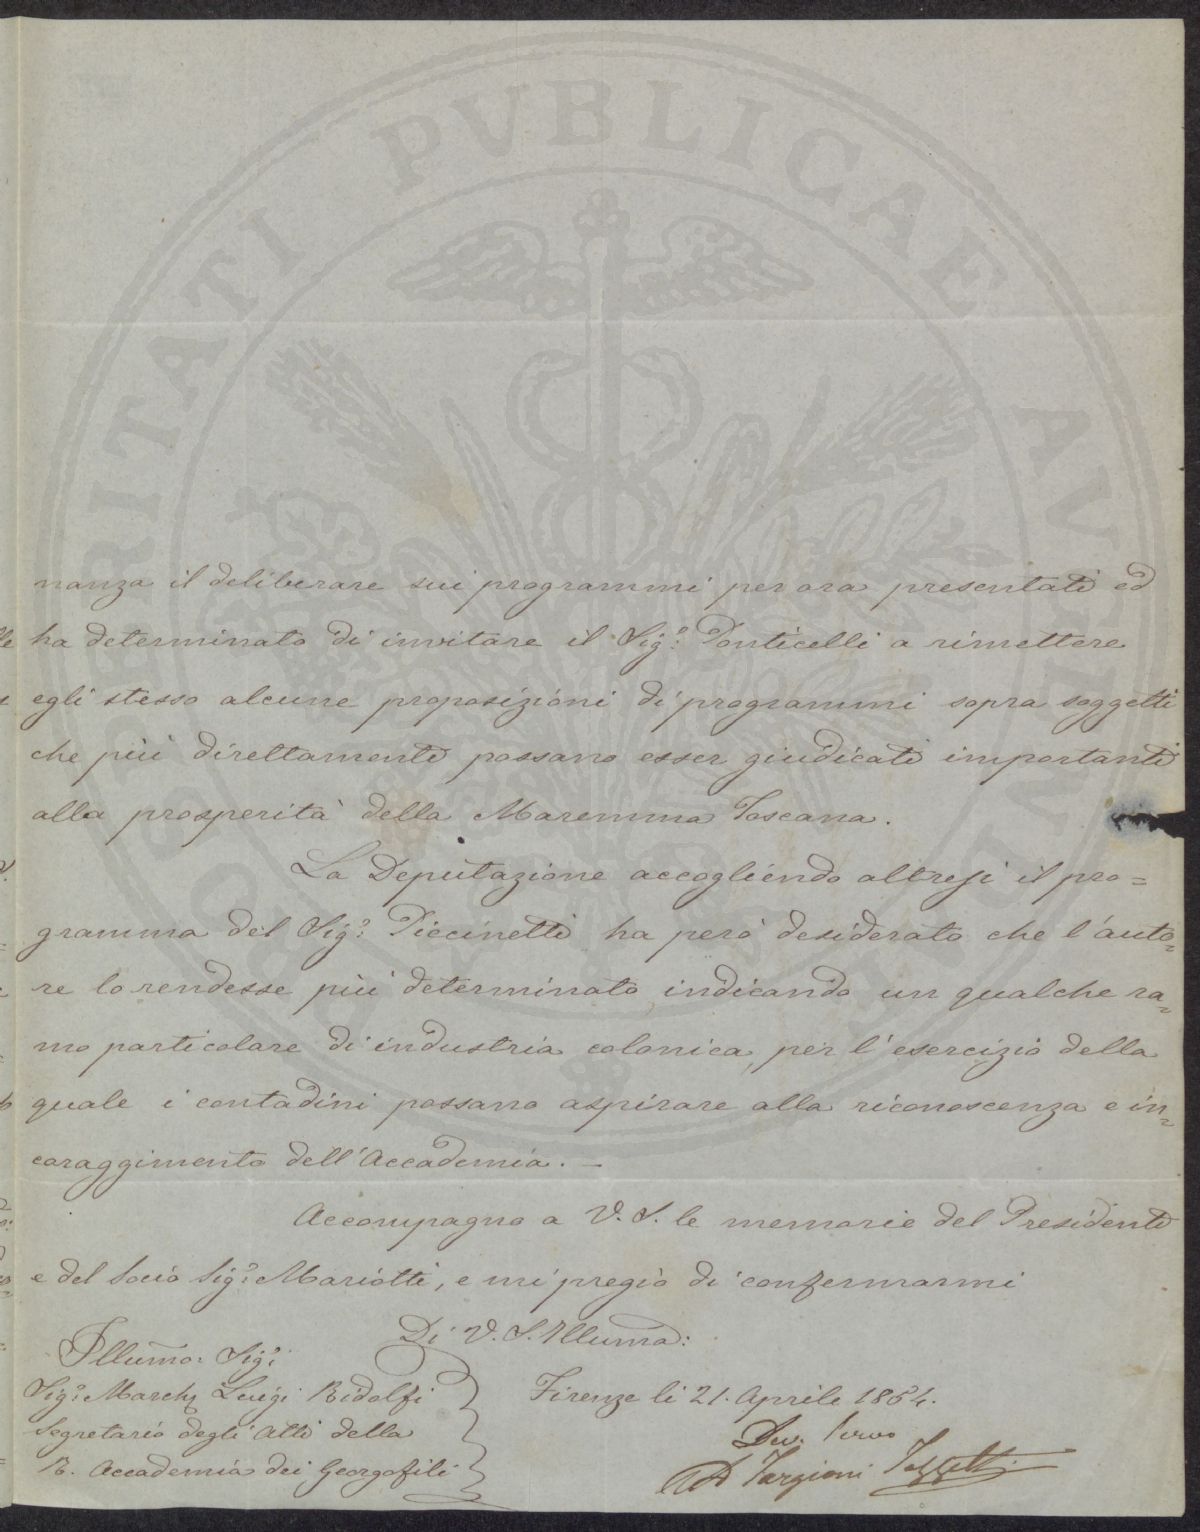 nanza il deliberare sui programmi per ora presentati ed
ha determinato di invitare il Sig.r Ponticelli a rimettere
egli stesso alcune proposizioni di programmi sopra soggetti
che più direttamente possano esser giudicati importanti
alla prosperità della Maremma Toscana.
La Deputazione accogliendo altresì il pro=
gramma del Sig.r Piccinetti ha però desiderato che l'auto=
re lo rendesse più determinato indicando un qualche ra=
mo particolare di industria colonica, per l'esercizio della
quale i contadini possano aspirare alla riconoscenza e in=
coraggimento dell'Accademia. –
Accompagno a V. S. le memorie del Presidente
e del Socio Sig.r Mariotti, e mi pregio di confermarmi
Di V. S. Illuma:
Illumo: Sig.r
Sig.r March Luigi Ridolfi
Segretario degli Atti della
R. Accademia dei Georgofili
Firenze li 21. Aprile 1854.
Dev. Servo
A Targioni Tozzetti
PROSPERITATI PVBLICAE AVGENDAE